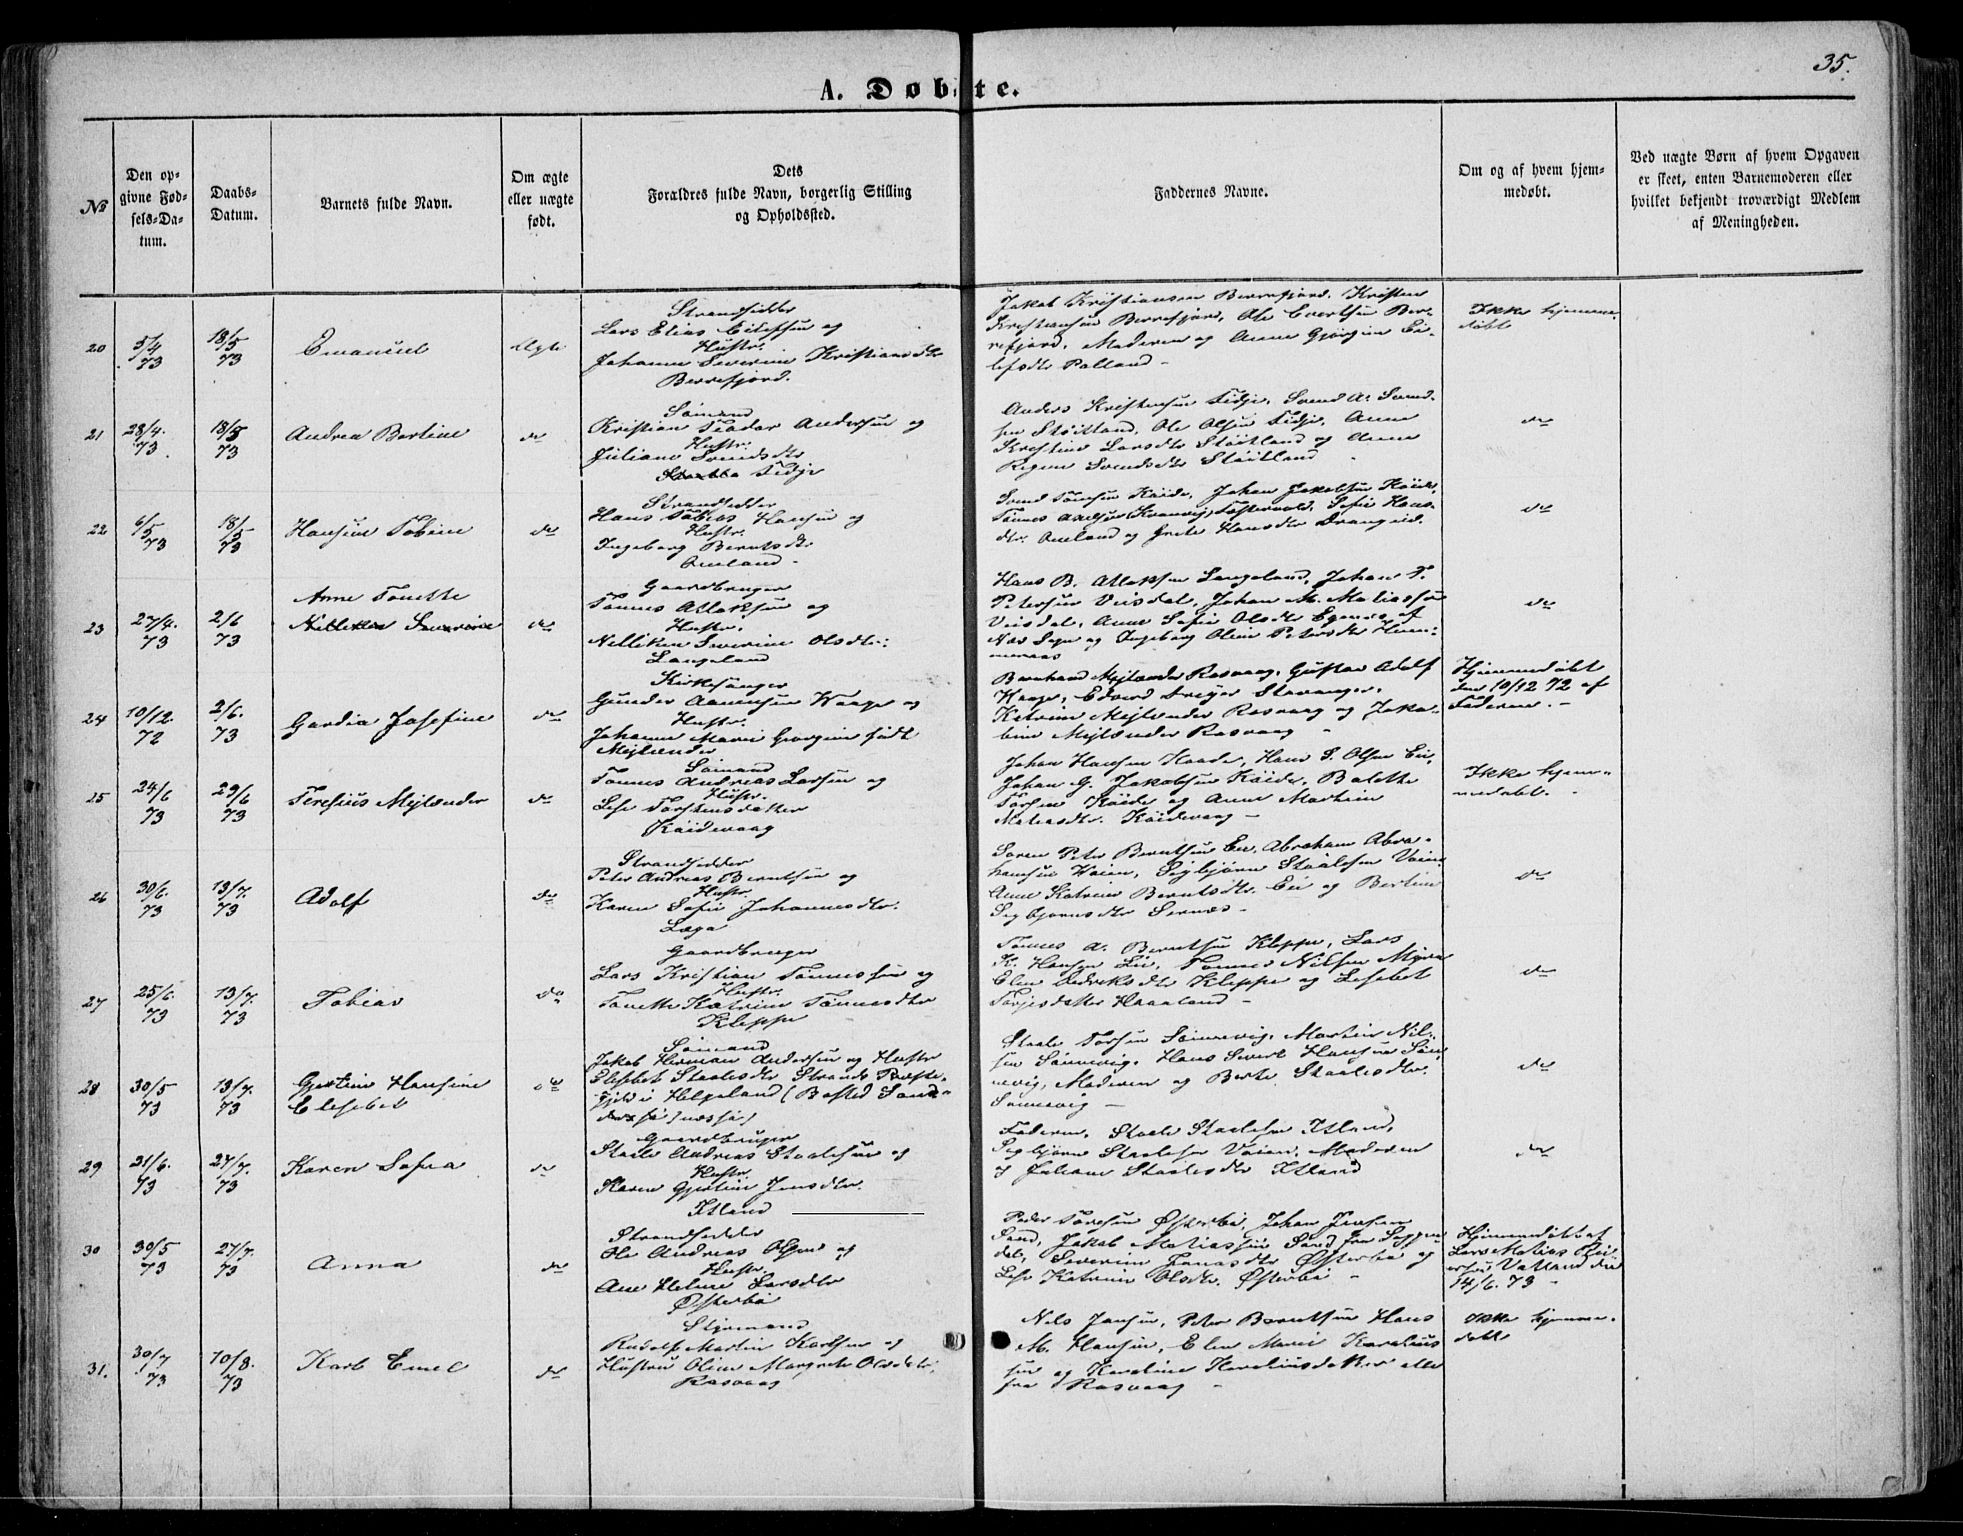 35.
A. Døbte.
№
Den opgivne Fødsels-Datum.
Daabs-Datum.
Barnets fulde Navn.
Om ægte eller uægte født.
Dets Forældres fulde Navn, borgerlig Stilling og Opholdssted.
Faddernes Navne.
Om og af hvem hjemmedøbt.
Ved uægte Børn af hvem Opgaven er skeet, enten Barnemoderen eller hvilket bekjendt troværdigt Medlem af Meningheden.
20
5/4 73
18/5 73
Emanuel
Ægte
Strandsidder
Lars Elias Eilefsen og
Hustr.
Johanne Severine Kristiansdtr
Berrefjord.
Jakob Kristiansen Berrefjord, Kristen
Kristiansen Berrefjord, Ole Evertsen Ber-
refjord, Moderen og Anne Gjørgine Ei-
lefsdtr Polland
Ikke hjemme-
døbt
21
28/4. 73
18/5 73
Andrea Bertine
do
Sømand
Kristian Teodor Andersen og
Hustr.
Juliane Svendsdtr
Tidje
Anders Kristensen Tidje, Svend A. Svend-
sen Støitland, Ole Olsen Tidje, Anne
Kristine Larsdtr Støitland og Anne
Regine Svendsdtr Støitland
do
22
6/5 73
18/5 73
Hansine Tobine
do
Strandsidder
Hans Tobias Hansen og
Hustr.
Ingeborg Berntsdtr
Aneland
Svend Tønesen Køide, Johan Jakobsen Køide,
Tønnes Axelsen (Kranvig) Tostervold, Sofie Hans-
dtr. Aneland og Grete Hansdtr Drangeid.
do
23
27/4. 73
2/6 73
Anne Tonette
Nilliken Severine
do
Gaardbruger
Tønnes Atlaksen og
Hustr.
Nilliken Severine Olsdtr:
Langeland
Hans B. Atlaksen Langeland, Johan T.
Petersen Veisdal, Johan M. Matiassen
Veisdal, Anne Sofie Olsdtr Egenes af
Næs Sogn og Ingeborg Oline Petersdtr Hum-
meraas
do
24
10/12. 72
2/6. 73
Gardia Josefine
do
Kirkesanger
Gunder Aanensen Haage og
Hustr.
Johanne Marie Georgine født
Mejlænder
Bernhard Mejlænder Rasvaag, Gustav Adolf
Haage, Edvard Dreyer Stavanger,
Katrine Mejlænder Rasvaag og Jako-
bine Mejlænder Rasvaag
Hjemmedøbt
den 10/12 72 af
Faderen.
25
24/6 73
29/6 73
Teresius Mejlænder
do
Sømand
Tønnes Andreas Larsen og
Hustr.
Lise Torstensdatter
Køidevaag
Johan Hansen Haade, Hans S. Olsen Eie,
Johan G. Jakobsen Køide, Bolette
Torsen Køide og Anne Martine
Matiasdtr. Køidevaag
Ikke hjem-
medøbt.
26
30/6. 73
13/7. 73
Adolf
do
Strandsidder
Peter Andreas Berntsen og
Hustr.
Karen Sofie Johannesdtr.
Søren Peter Berntsen Eie, Abraham Abra-
hamsen Høien, Sigbjørn Staalesen Vaien
Anne Katrine Berntsdtr. Eie og Bertine
Sigbjørnsdtr Sernæs
do
27
25/6. 73
13/7. 73
Tobias
do
Gaardbruger
Lars Kristian Tønnessen og
Hustr.
Tonette Katrine Tønnesdtr
Kleppe
Tønnes A. Berntsen Kleppe, Lars
K. Hansen Lie, Tønnes Nilsen Myra
Elen Didriksdtr Kleppe og Lisebet
Torjesdatter Haaland
do
28
30/5 73
13/7. 73
Gjertine Hansine
Elisebet
do
Sømand
Jakob Herman Andersen og Hustr
Elisebet Staalesdtr Strands Præste-
gjeld i Helgeland (Bosted Sand-
Staale Torsen Sønnevig, Martin Nil-
sen Sønnevig, Hans Severt Hansen Søn-
nevig, Moderen og Berte Staalesdtr.
Sønnevig
do
29
21/6. 73
27/7. 73
Karen Sofia
do
Gaardbruger
Staale Andreas Staalesen og
Hustr.
Karen Gjertine Jensdtr.
Itland
Faderen, Staale Staalesen Itland,
Sigbjørn Staalesen Vaien, Moderen
og Juliane Staalesdtr Itland
do
30
30/5 73
27/7. 73
Anna
do
Strandsidder
Ole Andreas Olsen og
Hustr.
Ane Helene Larsdtr
Østerbø
Peder Tørresen Østerbø, Johan Jensen
Sand, Jakob Matiassen Sand fra Siggen-
dal, Severine Jonasdtr Østerbø og
Lise Katrine Olsdtr. Østerbø
Hjemmedøbt af
Lars Matias Rei-
ersen Vatland den
14/6. 73
31.
30/7 73
10/8. 73
Karl Emel
do
Styrmand
Rudolf Martin Karlsen og
Hustru Oline Margrete Olsdtr.
Rasvaag
Nils Jansen, Peter Berntsen Hans
M. Hansen, Elen Marie Karelius-
sen og Karoline Kareliusdatter alle
fra Rasvaag
Ikke hjemme-
døbt